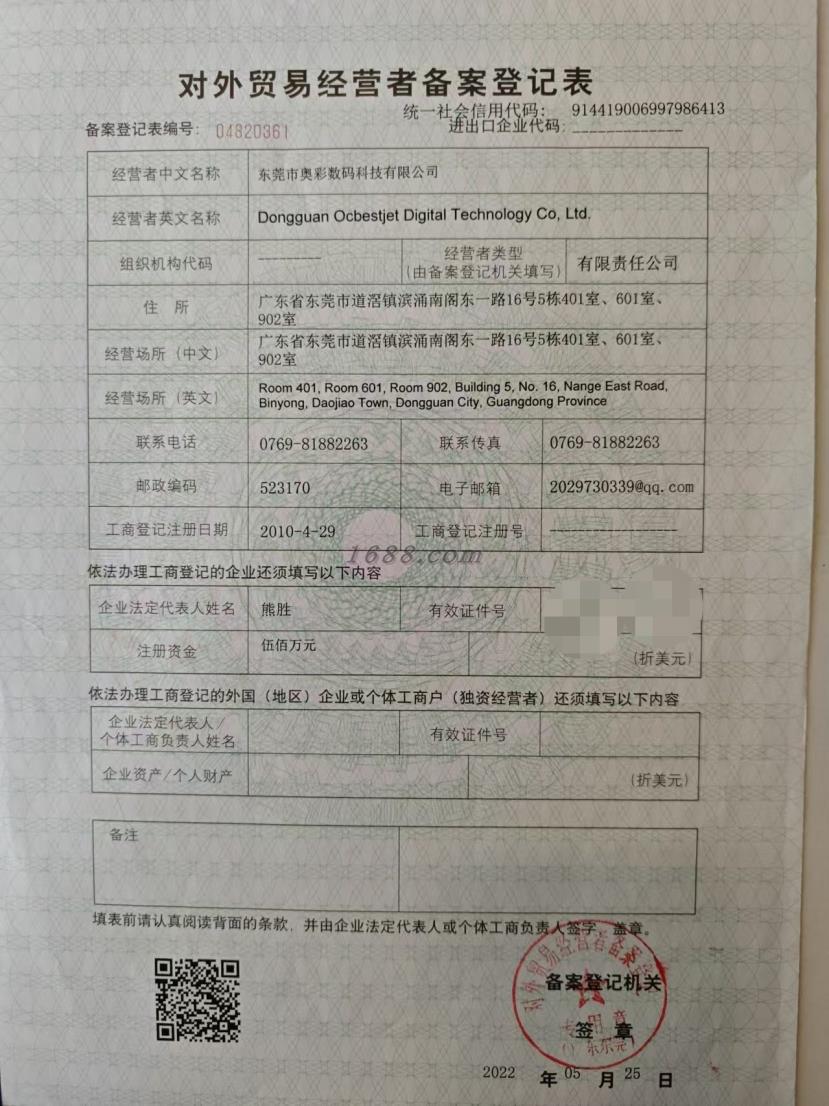 对外贸易经营者备案登记表
统一社会信用代码： 914419006997986413
备案登记表编号： 04820361
进出口企业代码：_____________
经营者中文名称 东莞市奥彩数码科技有限公司
经营者英文名称 Dongguan Ocbestjet Digital Technology Co, Ltd.
组织机构代码 --------- 经营者类型
(由备案登记机关填写) 有限责任公司
住 所 广东省东莞市道滘镇滨涌南阁东一路16号5栋401室、601室、
902室
经营场所（中文） 广东省东莞市道滘镇滨涌南阁东一路16号5栋401室、601室、
902室
经营场所（英文） Room 401, Room 601, Room 902, Building 5, No. 16, Nange East Road,
Binyong, Daojiao Town, Dongguan City, Guangdong Province
联系电话 0769-81882263 联系传真 0769-81882263
邮政编码 523170 电子邮箱 2029730339@qq.com
工商登记注册日期 2010-4-29 工商登记注册号 ------------------
1688.com
依法办理工商登记的企业还须填写以下内容
企业法定代表人姓名 熊胜 有效证件号
注册资金 伍佰万元 (折美元)
依法办理工商登记的外国（地区）企业或个体工商户（独资经营者）还须填写以下内容
企业法定代表人/
个体工商负责人姓名 有效证件号
企业资产/个人财产 (折美元)
备注
填表前请认真阅读背面的条款，并由企业法定代表人或个体工商负责人签字、盖章。
对外贸易经营者备案登记
备案登记机关
专用章
签 章
(广东东莞)
2022 年 05 月 25 日